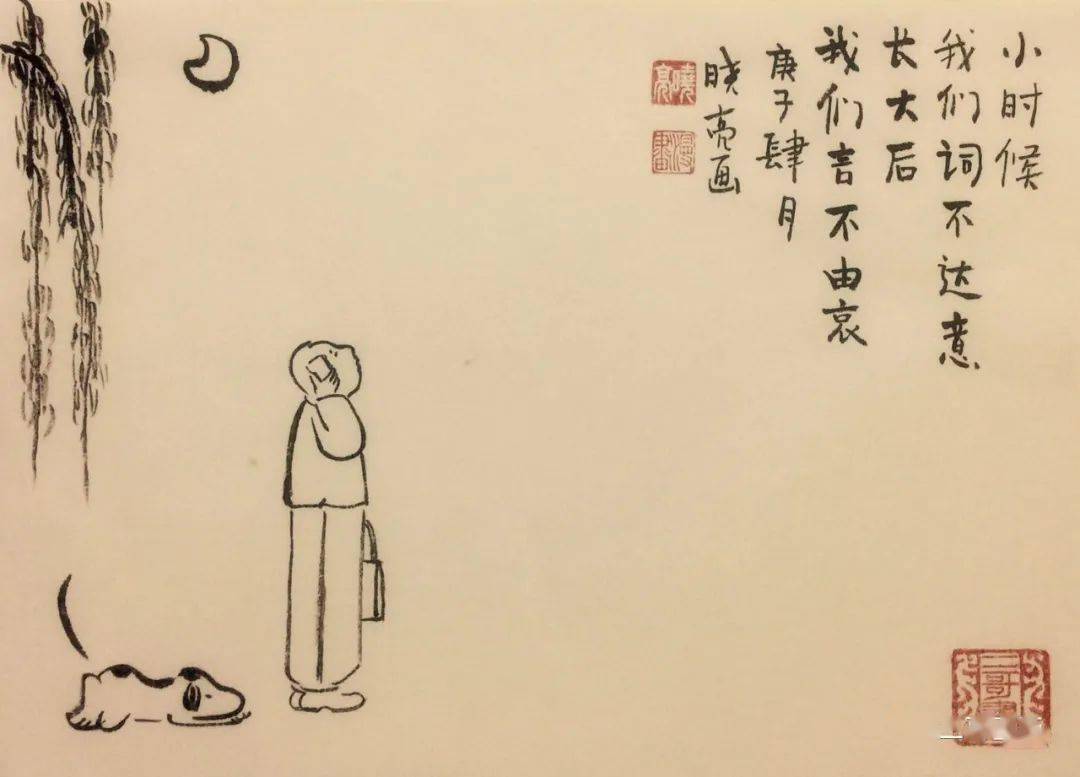 小时候
我们词不达意
长大后
我们言不由哀
庚子肆月
晓亮画
曉亮
漫畫